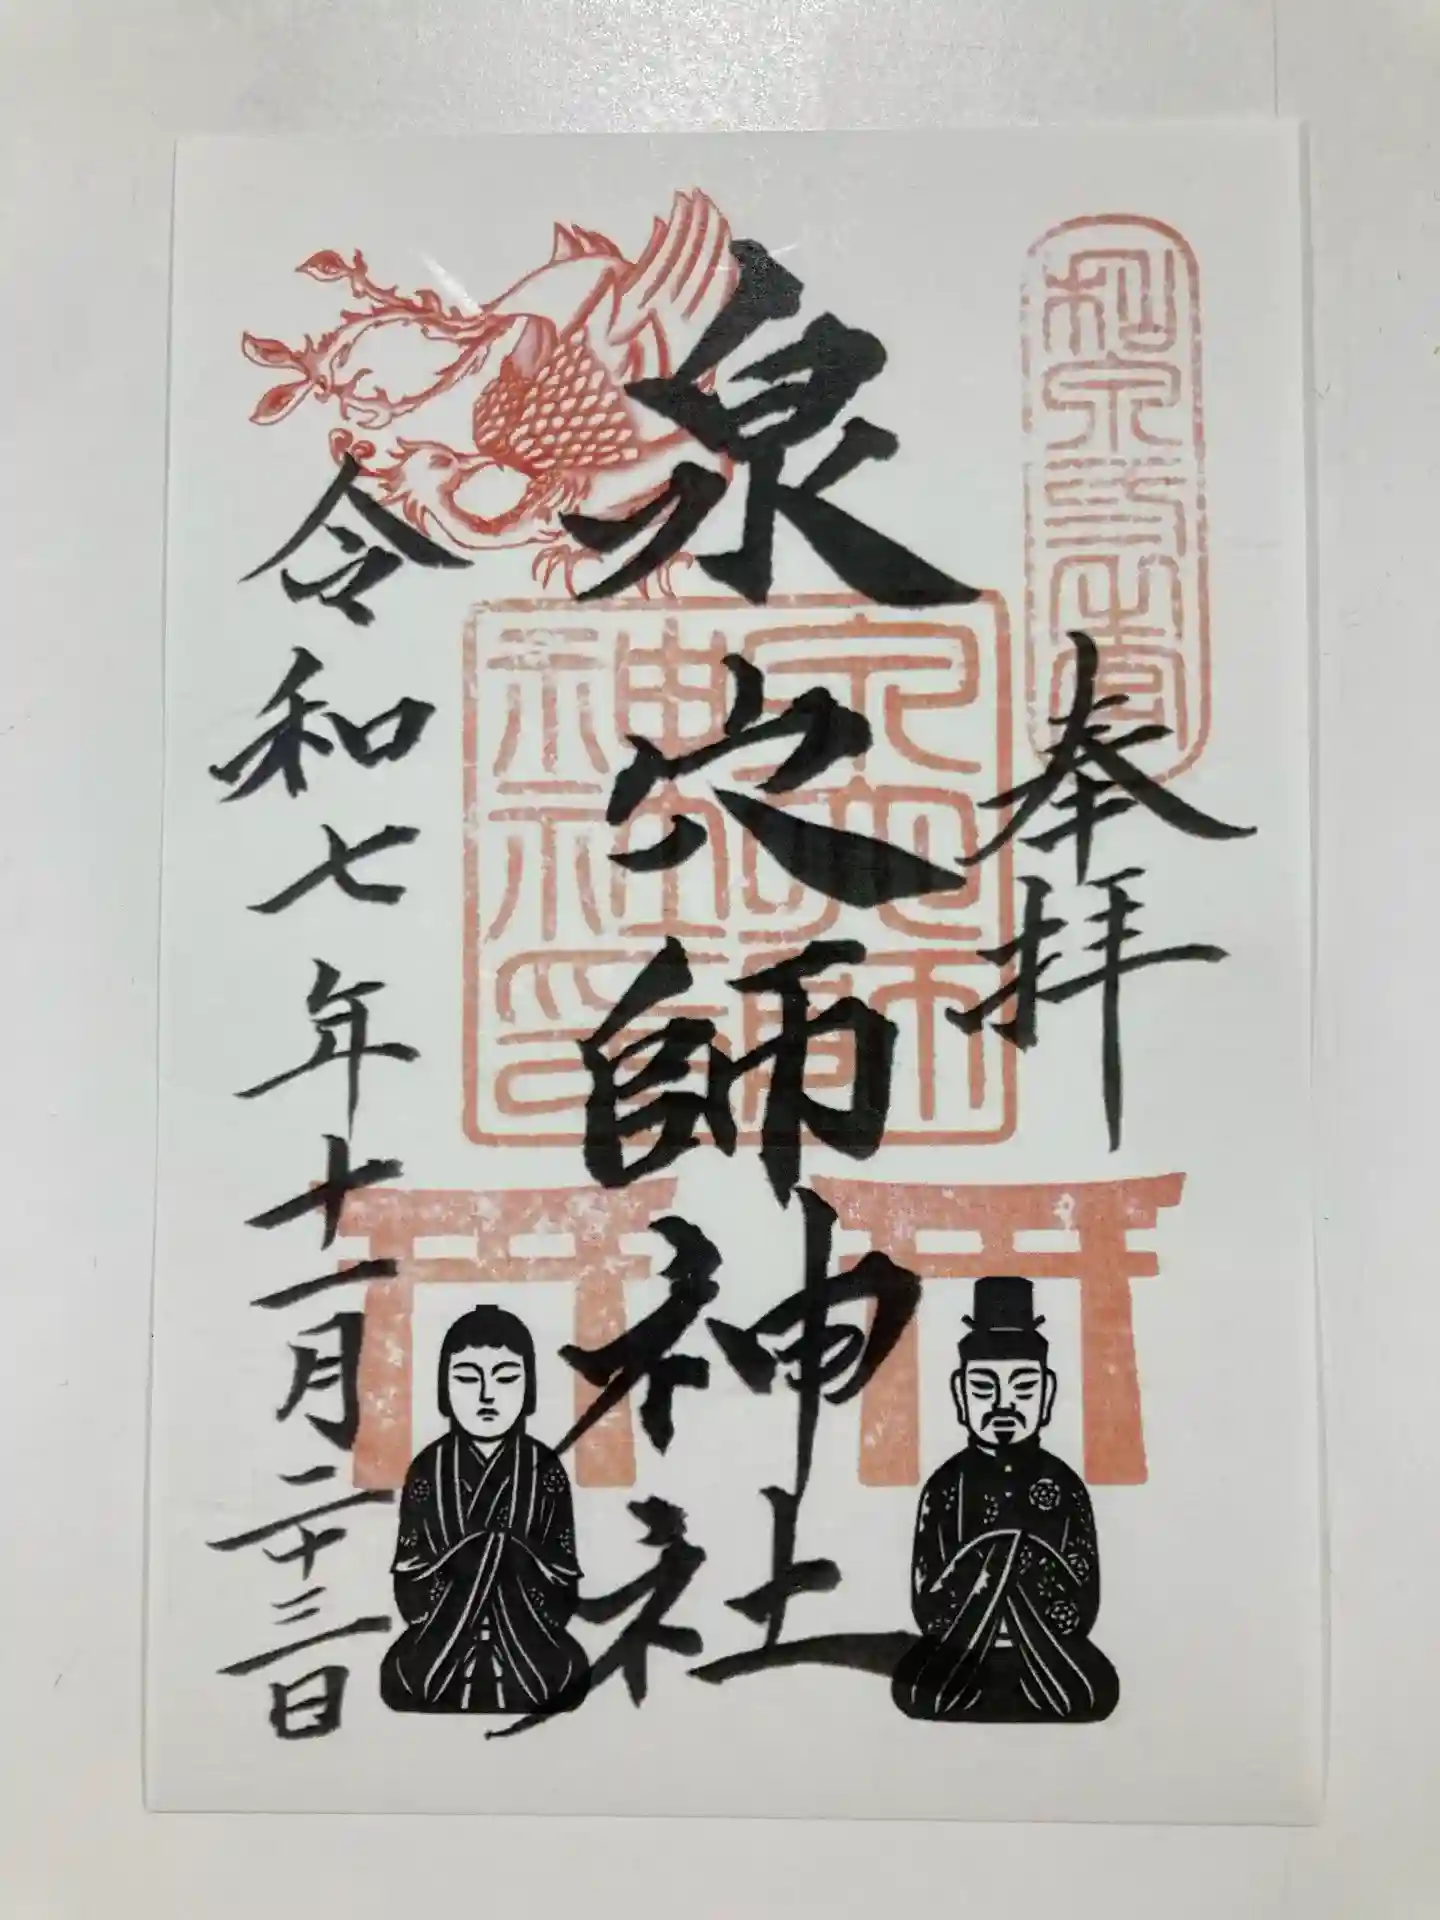 奉拝
泉穴師神社
令和七年十一月二十三日
泉穴師神社印